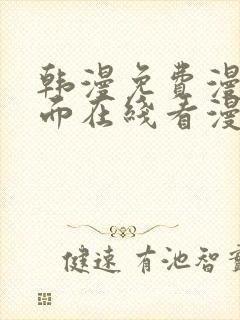 韩漫免费漫
而在线看漫
健速 有池智